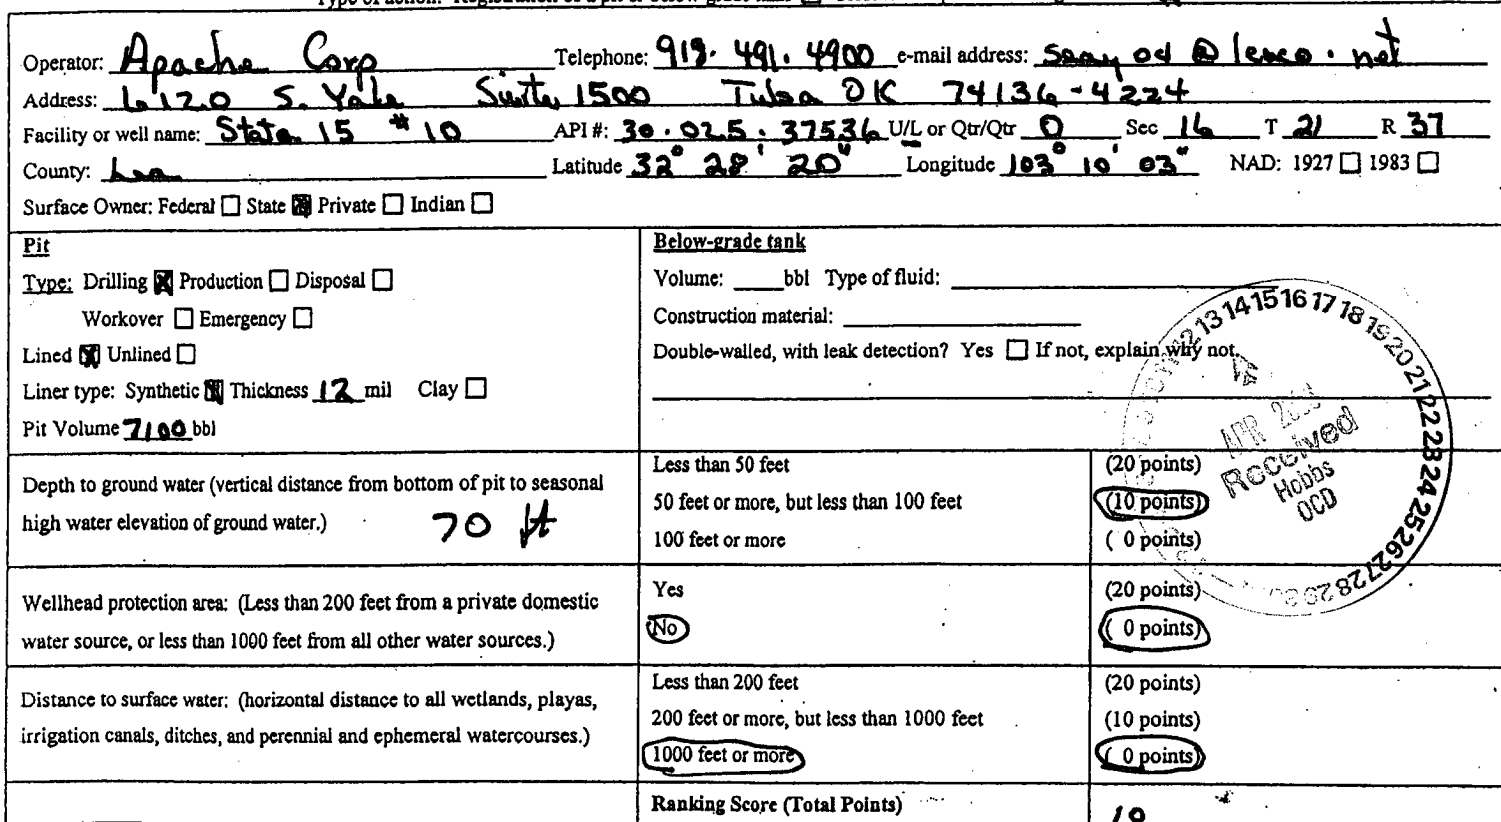 Operator: Apache Corp Telephone: 918.491.4900 e-mail address: @leaco.net
Address: 6120 S. Yale Suite 1500 Tulsa OK 74136-4224
Facility or well name: State 15 #10 API #: 30.025.37536 U/L or Qtr/Qtr O Sec 16 T 21 R 37
County: Lea Latitude 32° 28' 20" Longitude 103° 10' 03" NAD: 1927 ☐ 1983 ☐
Surface Owner: Federal ☐ State ☒ Private ☐ Indian ☐
Pit
Type: Drilling ☒ Production ☐ Disposal ☐
Workover ☐ Emergency ☐
Lined ☒ Unlined ☐
Liner type: Synthetic ☒ Thickness 12 mil Clay ☐
Pit Volume 7100 bbl
Below-grade tank
Volume: ____bbl Type of fluid: ____
Construction material: ____
Double-walled, with leak detection? Yes ☐ If not, explain why not.
13 14 15 16 17 18 19 20 21 22 23 24 25 26 27 28 29 30
APR
Received
Hobbs
OCD
Depth to ground water (vertical distance from bottom of pit to seasonal
high water elevation of ground water.) 70 ft
Less than 50 feet (20 points)
50 feet or more, but less than 100 feet (10 points)
100 feet or more ( 0 points)
Wellhead protection area: (Less than 200 feet from a private domestic
water source, or less than 1000 feet from all other water sources.)
Yes (20 points)
No ( 0 points)
Distance to surface water: (horizontal distance to all wetlands, playas,
irrigation canals, ditches, and perennial and ephemeral watercourses.)
Less than 200 feet (20 points)
200 feet or more, but less than 1000 feet (10 points)
1000 feet or more ( 0 points)
Ranking Score (Total Points) 10